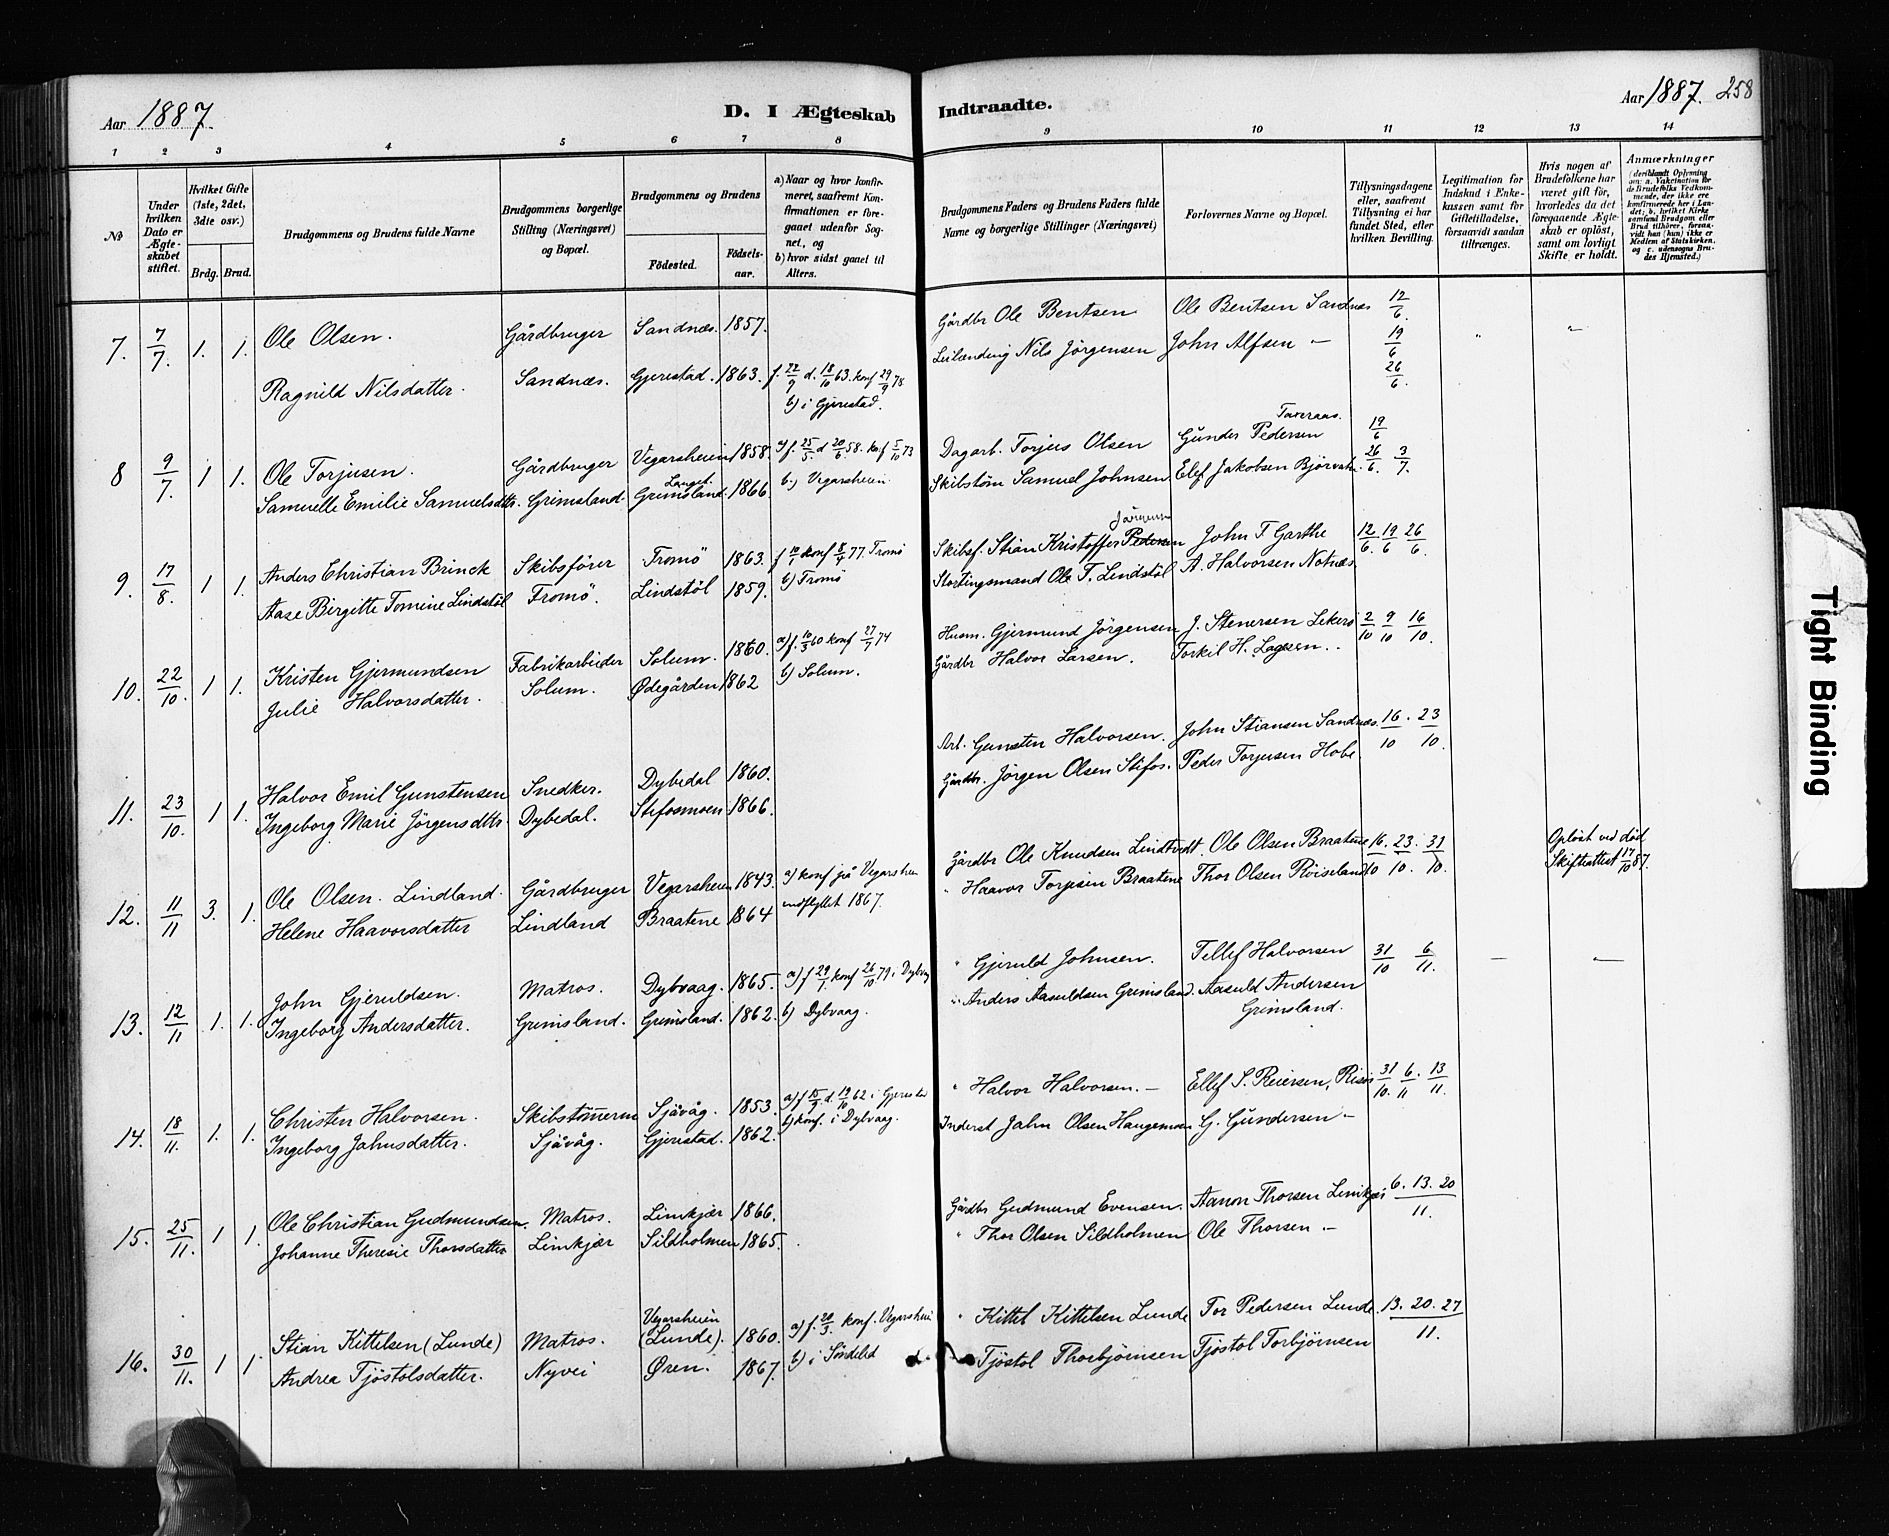 Aar 1887.
D. I Ægteskab Indtraadte.
Aar 1887. 258
1 2 3 4 5 6 7 8 9 10 11 12 13 14
No
Under hvilken Dato er Ægteskabet stiftet.
Hvilket Gifte (1ste, 2det, 3dte osv.)
Brdg. Brud.
Brudgommens og Brudens fulde Navne
Brudgommens borgerlige Stilling (Næringsvei) og Bopæl.
Brudgommens og Brudens
Födested. Födselsaar.
a) Naar og hvor konfirmeret, saafremt Konfirmationen er foregaaet udenfor Sognet, og
b) hvor sidst gaaet til Alters.
Brudgommens Faders og Brudens Faders fulde Navne og borgerlige Stillinger (Næringsvei)
Forlovernes Navne og Bopæl.
Tillysningsdagene eller, saafremt Tillysning ei har fundet Sted, efter hvilken Bevilling.
Legitimation for Indskud i Enkekassen samt for Giftetilladelse, forsaavidt saadan tiltrænges.
Hvis nogen af Brudefolkene har været gift för, hvorledes da det foregaaende Ægteskab er oplöst, samt om lovligt Skifte er holdt.
Anmærkninger
(deriblandt Oplysning om: a. Vakcination for de Brudefolks Vedkommende, der ikke ere konfirmerede her i Landet; b. hvilket Kirkesamfund Brudgom eller Brud tilhörer, forsaavidt han (hun) ikke er Medlem af Statskirken, og c. udensogns Brudes Hjemsted.)
7. 7/7. 1. 1. Ole Olsen. Gårdbruger Sandnæs. 1857. Gårdbr Ole Bentsen Ole Bentsen Sandnæs 12/6. 19/6 26/6.
Ragnild Nilsdatter. Sandnæs. Gjerestad. 1863. f. 22/9 d. 18/10 63. konf 29/9 78 Leilending Nils Jörgensen John Alfsen —
b) i Gjerestad.
8 9/7. 1 1. Ole Torjusen. Gårdbruger Vegarsheien 1858. a) f. 25/5. d 20/6. 58. konf 5/10 73 Dagarb. Torjus Olsen Gunder Pedersen 19/6
Samuelle Emilie Samuelsdttr. Grimsland. Grimsland. 1866. b.) Vegarsheien. Skibstöm Samuel Johnsen Elef Jakobsen 26/6. 3/7.
9. 17/8. 1 1. Anders Christian Brinck Skibsförer Tromö 1863. konf 8/4 77. Tromö Skibsf. Stian Kristoffer Pedersen John T Garthe 12/6. 19/6 26/6.
Aase Birgitte Tomine Lindstöl Tromö. Lindstöl 1859. b) Tromö Stortingsmand Ole T. Lindstöl A. Halvorsen
10. 22/10. 1 1. Kristen Gjermundsen Fabrikarbeider Solum. 1860. a) f. 10/3 60 konf 27/7 74 Husm. Gjermund Jörgensen J. Stenersen 2/10 9/10 16/10.
Julie Halvorsdatter. Solum. Ødegården 1862 b) Solum. Gårdbr Halvor Larsen. Torkil H.
11. 23/10. 1 1. Halvor Emil Gunstensen Snedker. Dybedal 1860. Arb. Gunsten Halvorsen. John Stiansen Sandnæs. 16/10. 23/10.
Ingeborg Marie Jörgensdttr. Dybedal. Stifosmoen 1866. Gårdbr. Jörgen Olsen Stifos. Peder Torjusen Hobe
12. 11/11 3. 1. Ole Olsen. Lindland. Gårdbruger Vegarsheien 1843. a) konf på Vegarsheien Gårdbr Ole Knudsen Lindtvedt. Ole Olsen Braatene 16/10. 23/10. 31/10. Oplöst ved död
Helene Haavorsdatter Lindland Braatene 1864 indflyttet 1867. " Haavor Torjusen Braatene Thor Olsen Röiseland Skifteattest 17/10 87.
13. 12/11 1. 1. John Gjeruldsen. Matros. Dybvaag. 1865. a) f 29/1. konf 26/10 79 i Dybvaag " Gjeruld Johnsen. Tellef Halvorsen 31/10 6/11. —
Ingeborg Andersdatter. Grimsland. Grimsland. 1862. b) Dybvaag. " Anders Aasuldsen Grimsland. Aasuld Andersen
Grimsland.
14. 18/11. 1. 1. Christen Halvorsen. Skibstömmerm Sjåvåg. 1853. i Gjerestad " Halvor Halvorsen. — Ellef S. Reiersen, Risör 31/10. 6/11. 13/11.
Ingeborg Jahnsdatter. Sjåvåg. Gjerestad. 1862. b) konf. i Dybvaag. Inderst Jahn Olsen Haugemoen G. Gundersen —
15. 25/11. 1 1. Ole Christian Gudmundsen. Matros. Limkjær 1866. Gårdbr Gudmund Evensen. Aanon Thorsen Limkjær 6. 13. 20/11.
Johanne Theresie Thorsdatter Limkjær Sildholmen 1865. " Thor Olsen Sildholmen Ole Thorsen —
16. 30/11. 1 1 Stian Kittelsen (Lunde) Matros. Vegarsheien (Lunde). 1860. a) f. 20/3. konf. Vegarsheien " Kittel Kittelsen Lunde Tor Pedersen Lunde 13. 20. 27/11.
Andrea Tjöstolsdatter. Nyvei Øren. 1867. b) i Söndeled Tjöstol Thorbjörnsen Tjöstol Torbjörnsen
Tight Binding